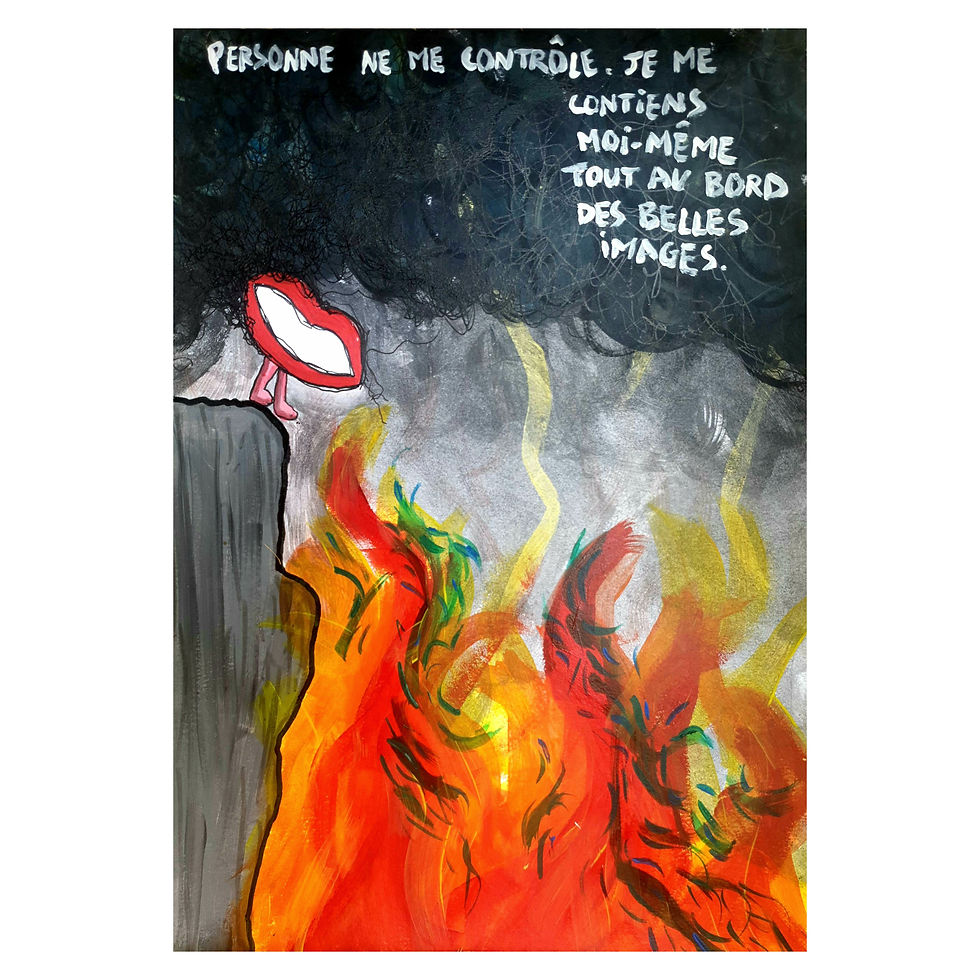 PERSONNE NE ME CONTRÔLE. JE ME
CONTIENS
MOI-MÊME
TOUT AU BORD
DES BELLES
IMAGES.